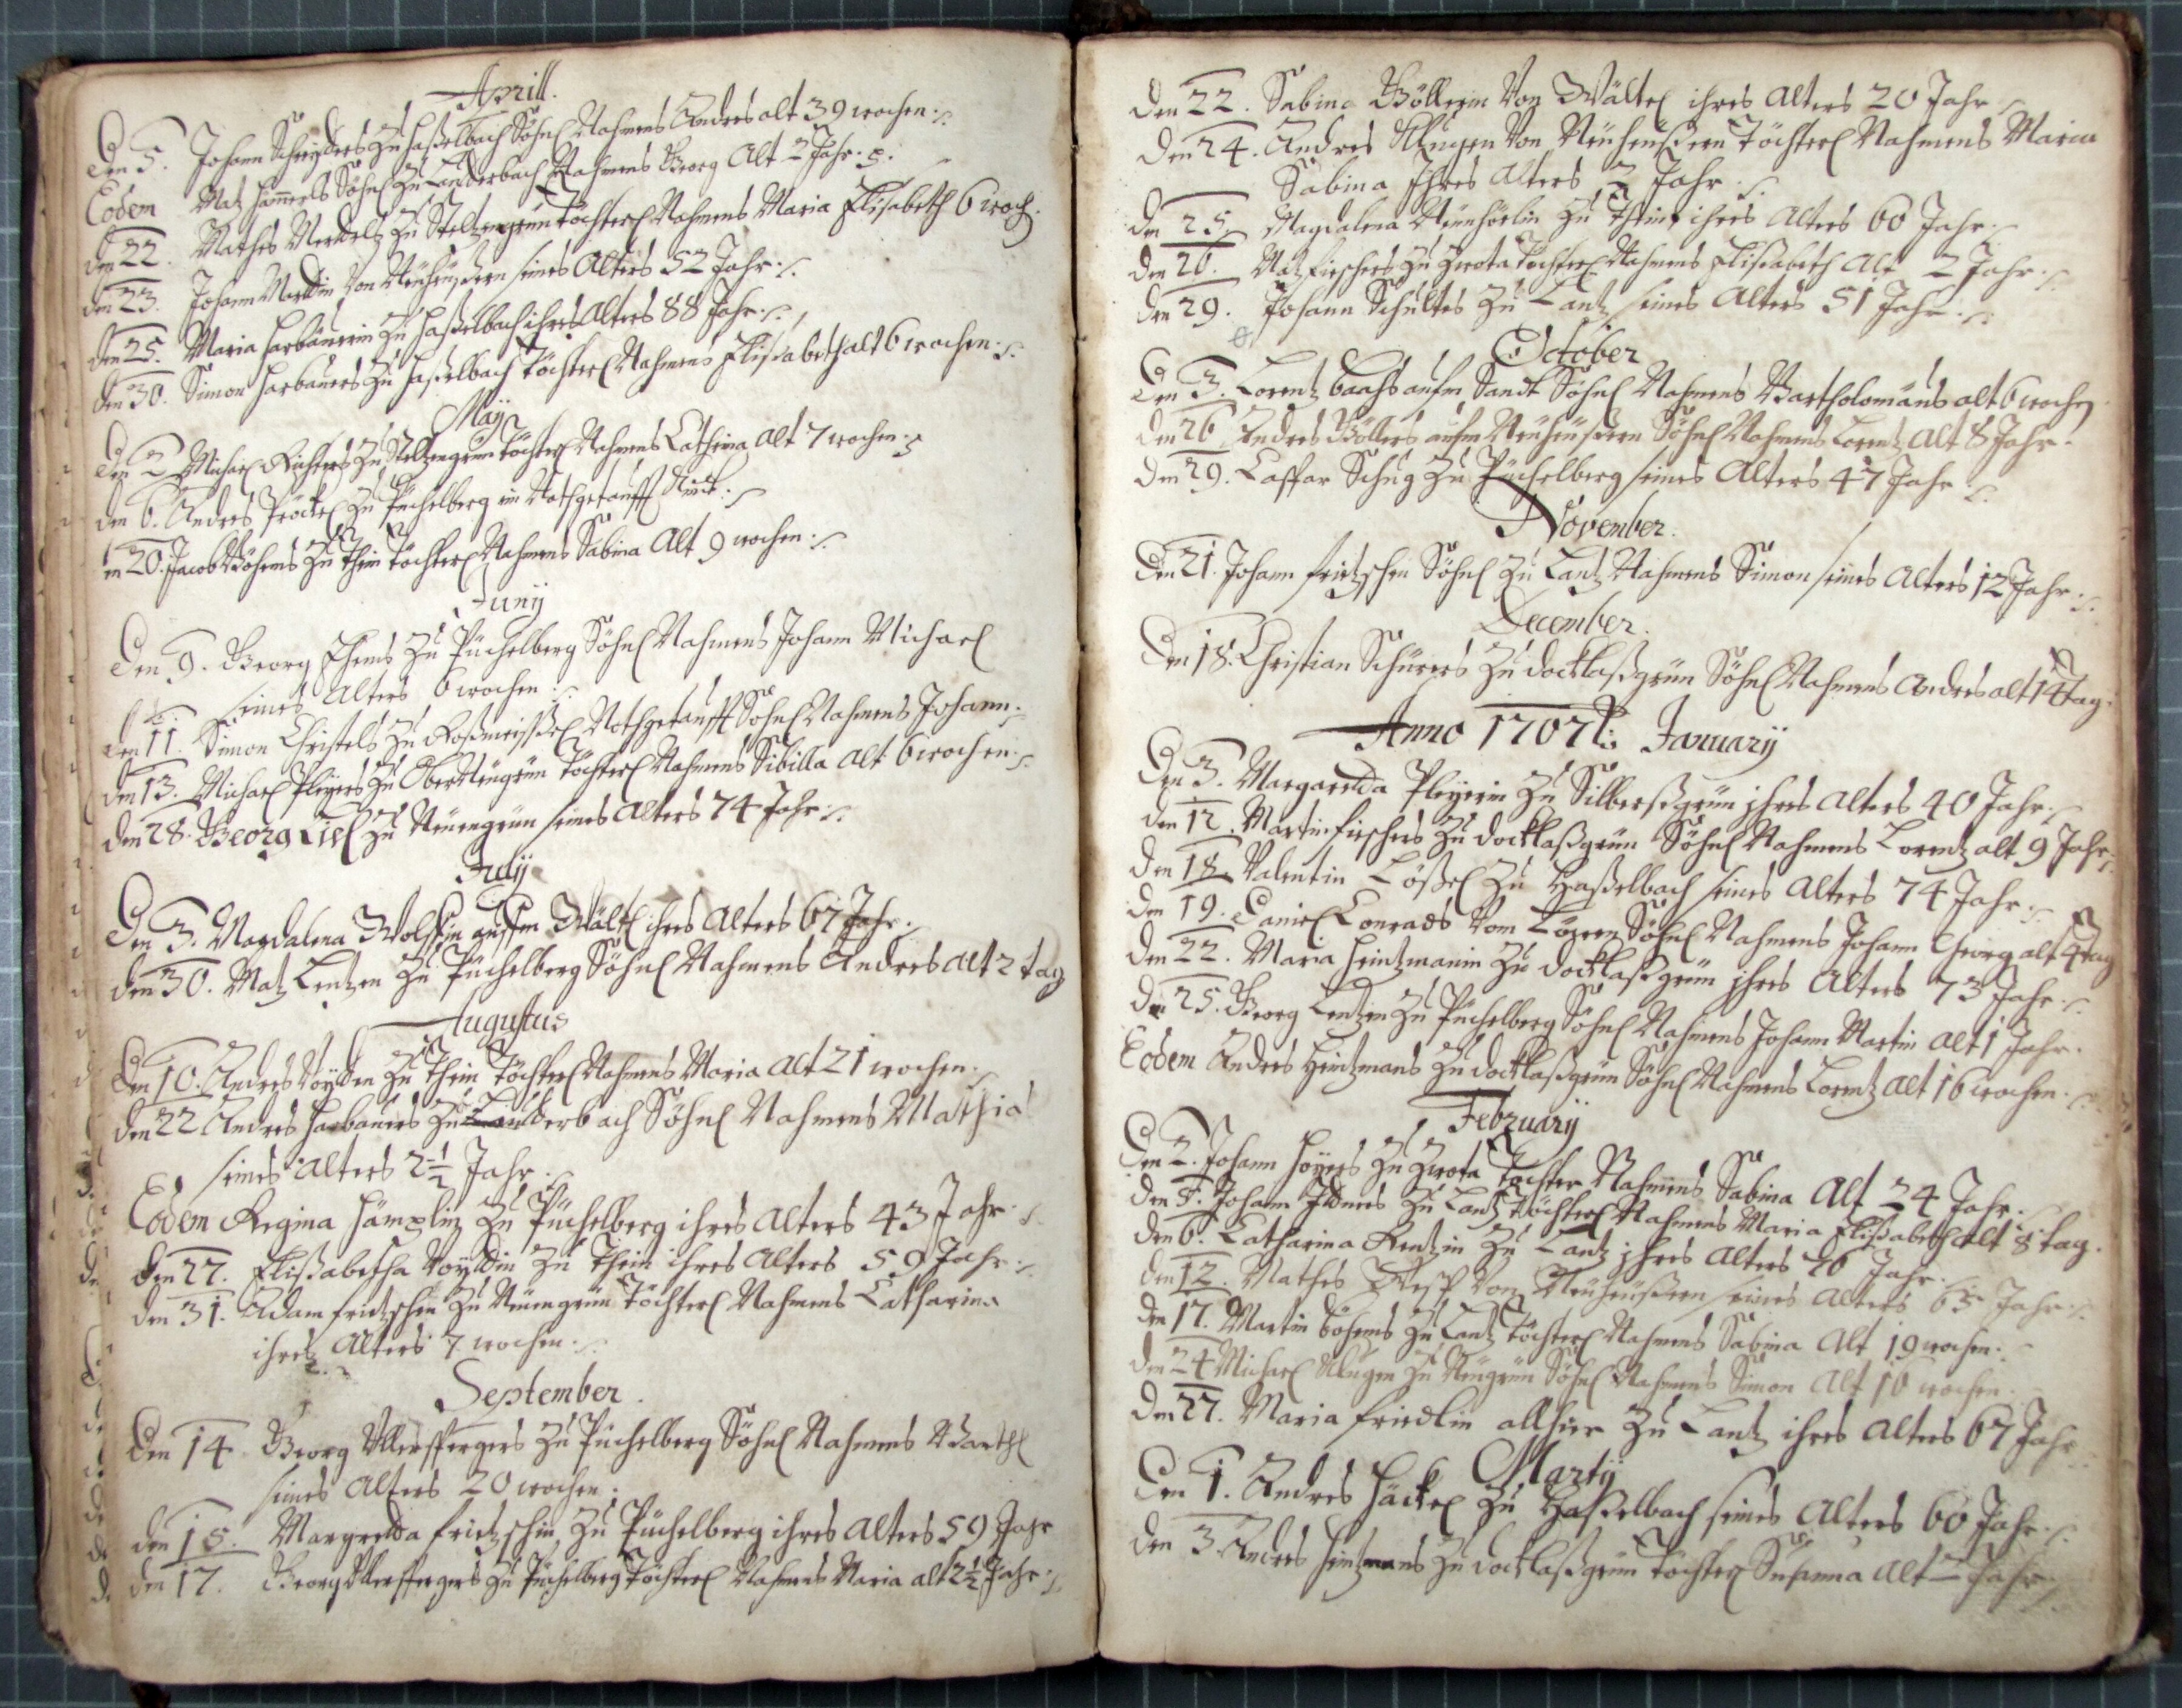 Aprill.
Den 5. Johann Schnyders zu Haßelbach Söhnl Nahmens Andres alt 39 wochen
Eodem Matz Hamerls Söhnl zu Lauterbach Nahmens Georg Alt 2 Jahr.
den 22. Mathes zu Steltzengrün Töchterl Nahmens Maria Elisabeth 6 woch.
den 23. Johann von Neuheußern seines Alters 52 Jahr
den 25. Maria Harbauerin zu Haßelbach ihres Alters 88 Jahr
den 30. Simon Harbauers zu Haßelbach Töchterl Nahmens Elisabeth alt 6 wochen
Maij
Den 2 Michael Richters zu Steltzengrün Töchterl Nahmens Cathrina Alt 7 wochen
den 6. Andres Pröckl zu Püchelberg ein Nothgetaufft Kindt
den 20. Jacob Böhems zu Thein Töchterl Nahmens Sabina Alt 9 wochen
Juny
Den 9. Georg Ehems zu Püchelberg Söhnl Nahmens Johann Michael
seines Alters 6 wochen
den 11. Simon Christels zu Roßmeissel Nothgetaufft Söhnl Nahmens Johann
den 13. Michael Pleyers zu Ober Neugrün Töchterl Nahmens Sibilla Alt 6 wochen
den 28. Georg zu Neuengrün seines Alters 74 Jahr
July
Den 3. Magdalena Wolffin auffm Wältl ihres Alters 67 Jahr
den 30. Matz Lentzen zu Püchelberg Söhnl Nahmens Andres Alt 2 tag
Augustus
Den 10. Andres Voyden zu Thein Töchterl Nahmens Maria Alt 21 wochen
den 22 Andres Harbauers zu Lauderbach Söhnl Nahmens Mathia
seines Alters 2½ Jahr
Eodem Regina Hämplin zu Püchelberg ihres Alters 43 Jahr
den 27. Elißabetha Voydin zu Thein ihres Alters 59 Jahr
den 31. Adam Fritzschen zu Neuengrün Töchterl Nahmens Catharina
ihres Alters 7 wochen
September.
Den 14 Georg Ullerspergers zu Püchelberg Söhnl Nahmens Barthl
seines Alters 20 wochen
den 15. Margretta Fritzschin zu Püchelberg ihres Alters 59 Jahr
den 17. Georg Ullerspergers zu Püchelberg Töchterl Nahmens Maria alt 2½ Jahr
Den 22. Sabina Göllnerin Von Wältl ihres Alters 20 Jahr
Den 24. Andres Klugen Von Neuheußern Töchterl Nahmens Maria
Sabina Ihres Alters 3 Jahr
den 25. Magdalena zu Thein ihres Alters 60 Jahr.
den 26. Matz Fierschers zu Zwota Töchterl Nahmens Elißabeth Alt 2 Jahr.
den 29. Johann Schultes zu Lantz seines Alters 51 Jahr
October
Den 3. Lorentz Baahs aufm Sandt Söhnl Nahmens Bartholomäus alt 6 wochen
den 26 Andres Göllers aufm Neuheußern Söhnl Nahmens Lorentz Alt 8 Jahr.
den 29. Caspar Schug zu Püchelberg seines Alters 47 Jahr
November.
Den 21. Johann Fritzschen Söhnl zu Lantz Nahmens Simon seines Alters 12 Jahr
December.
Den 18. Christian Schürers zu Docklaßgrün Söhnl Nahmens Andres alt 14 tag.
Anno 1707 January
Den 3. Margaretta Pleyerin zu Silberßgrün ihres Alters 40 Jahr
den 12. Martin Fierschers zu Docklaßgrün Söhnl Nahmens Lorentz alt 9 Jahr
den 18. Valentin Lößel zu Haßelbach seines Alters 74 Jahr
den 19. Daniel Conrads Vom Söhnl Nahmens Johann Georg alt 4 tag
den 22. Maria Heintzmanin zu Docklaßgrün ihres Alters 73 Jahr
den 25. Georg Lentzen zu Püchelberg Söhnl Nahmens Johann Martin Alt 1 Jahr.
Eodem Andres Heintzmans zu Docklaßgrün Söhnl Nahmens Lorentz Alt 16 wochen
February
Den 2. Johann Hoyers zu Zwota Tochter Nahmens Sabina Alt 24 Jahr
den 5. Johann zu Lantz Töchterl Nahmens Maria Elisabeth alt 8 tag.
den 6. Catharina Rentzin zu Lantz ihres Alters 26 Jahr
den 12. Mathes Von Neuheußern seines Alters 65 Jahr
den 17. Martin Böhems zu Lantz Töchterl Nahmens Sabina Alt 19 wochen
den 24 Michael Klugen zu Neugrün Söhnl Nahmens Simon Alt 10 wochen.
den 27. Maria Friedlin allhier zu Lantz ihres Alters 67 Jahr
Martij
Den 1. Andres Häckel zu Haßelbach seines Alters 60 Jahr
den 3. Andres Heintzmans zu Docklaßgrün Töchterl Susanna Alt 2 Jahr